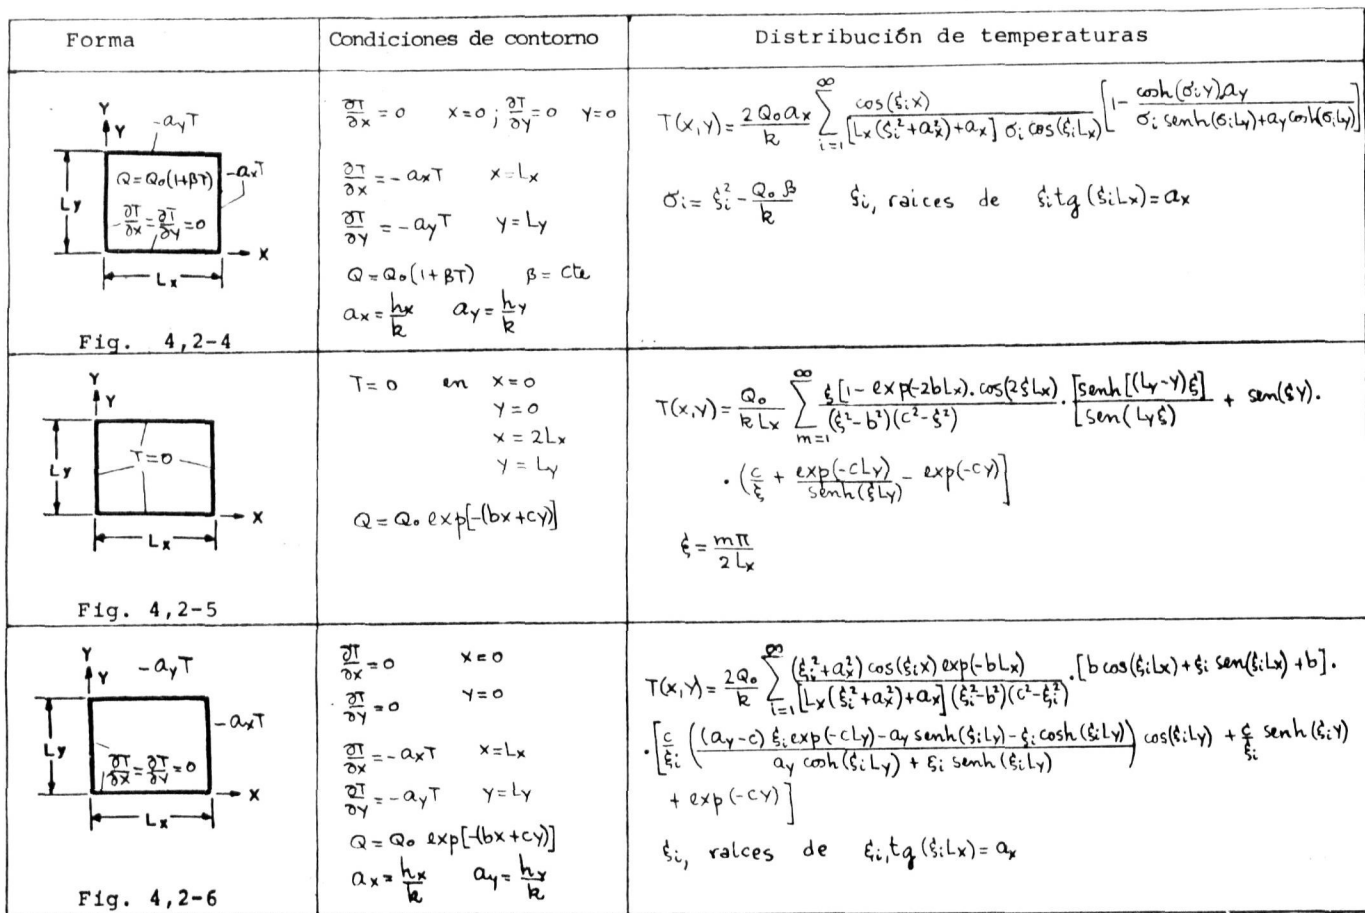 Forma
Condiciones de contorno
Distribución de temperaturas
Y
Y
-a_yT
-a_xT
Q=Q₀(1+βT)
Ly
∂T/∂x = ∂T/∂y = 0
X
Lx
Fig. 4,2-4
∂T/∂x = 0 x=0 ; ∂T/∂y = 0 y=0
∂T/∂x = -a_xT x=Lx
∂T/∂y = -a_yT y=Ly
Q=Q₀(1+βT) β= cte
a_x = h_x/k a_y = h_y/k
T(x,y) = 2Q₀a_x/k ∑_{i=1}^{∞} cos(ξ_i x)/([Lx(ξ_i²+a_x²)+a_x] σ_i cos(ξ_i Lx)) [1 - cosh(σ_i y)a_y/(σ_i senh(σ_i Ly)+a_y cosh(σ_i Ly))]
σ_i = ξ_i² - Q₀β/k ξ_i, raices de ξ_i tg(ξ_i Lx) = a_x
Y
Y
Ly
T=0
X
Lx
Fig. 4,2-5
T=0 en x=0
y=0
x=2Lx
y=Ly
Q=Q₀ exp[-(bx+cy)]
T(x,y) = Q₀/(k Lx) ∑_{m=1}^{∞} ξ[1-exp(-2bLx).cos(2ξLx)/((ξ²-b²)(c²-ξ²)) . [senh[(Ly-y)ξ]/[sen(Lyξ) + sen(ξy).
. (c/ξ + exp(-cLy)/senh(ξLy) - exp(-cy)]
ξ = mπ/(2Lx)
Y
Y
-a_yT
-a_xT
Ly
∂T/∂x = ∂T/∂y = 0
X
Lx
Fig. 4,2-6
∂T/∂x = 0 x=0
∂T/∂y = 0 y=0
∂T/∂x = -a_xT x=Lx
∂T/∂y = -a_yT y=Ly
Q=Q₀ exp[-(bx+cy)]
a_x = h_x/k a_y = h_y/k
T(x,y) = 2Q₀/k ∑_{i=1}^{∞} (ξ_i²+a_x²) cos(ξ_i x) exp(-bLx)/([Lx(ξ_i²+a_x²)+a_x](ξ_i²-b²)(c²-ξ_i²)) . [b cos(ξ_i Lx)+ξ_i sen(ξ_i Lx)+b].
. [c/ξ_i ((a_y-c) ξ_i exp(-cLy)-a_y senh(ξ_i Ly)-ξ_i cosh(ξ_i Ly))/(a_y cosh(ξ_i Ly)+ξ_i senh(ξ_i Ly)) cos(ξ_i Ly) + c/ξ_i senh(ξ_i y)
+ exp(-cy)]
ξ_i, raices de ξ_i, tg(ξ_i Lx) = a_x